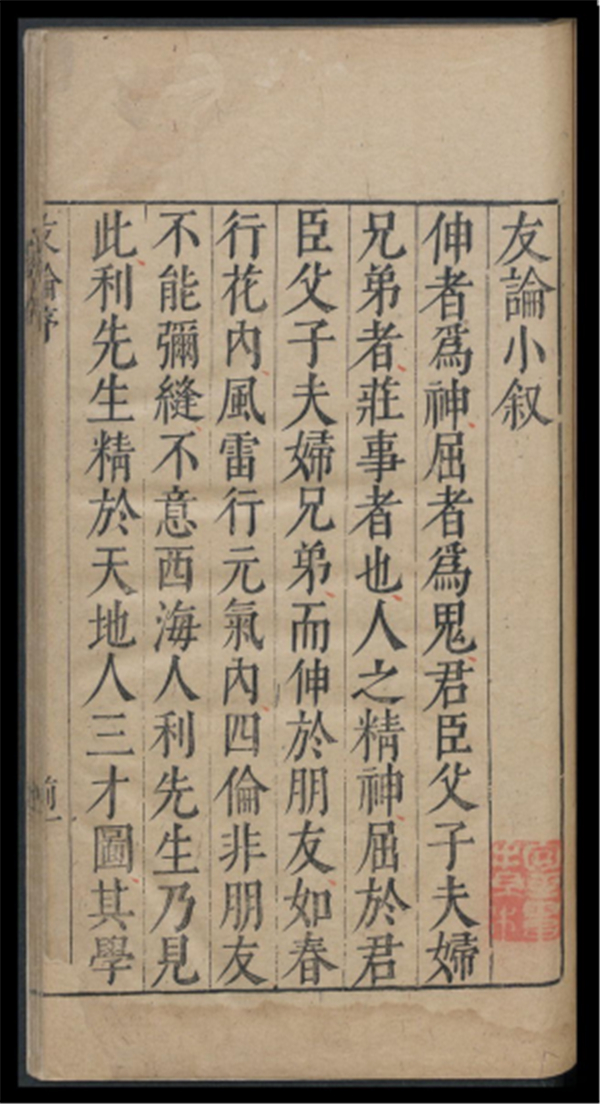 友論小叙
伸者爲神屈者爲鬼君臣父子夫婦
兄弟者莊事者也人之精神屈於君
臣父子夫婦兄弟而伸於朋友如春
行花內風雷行元氣內四倫非朋友
不能彌縫不意西海人利先生乃見
此利先生精於天地人三才圖其學
友論序